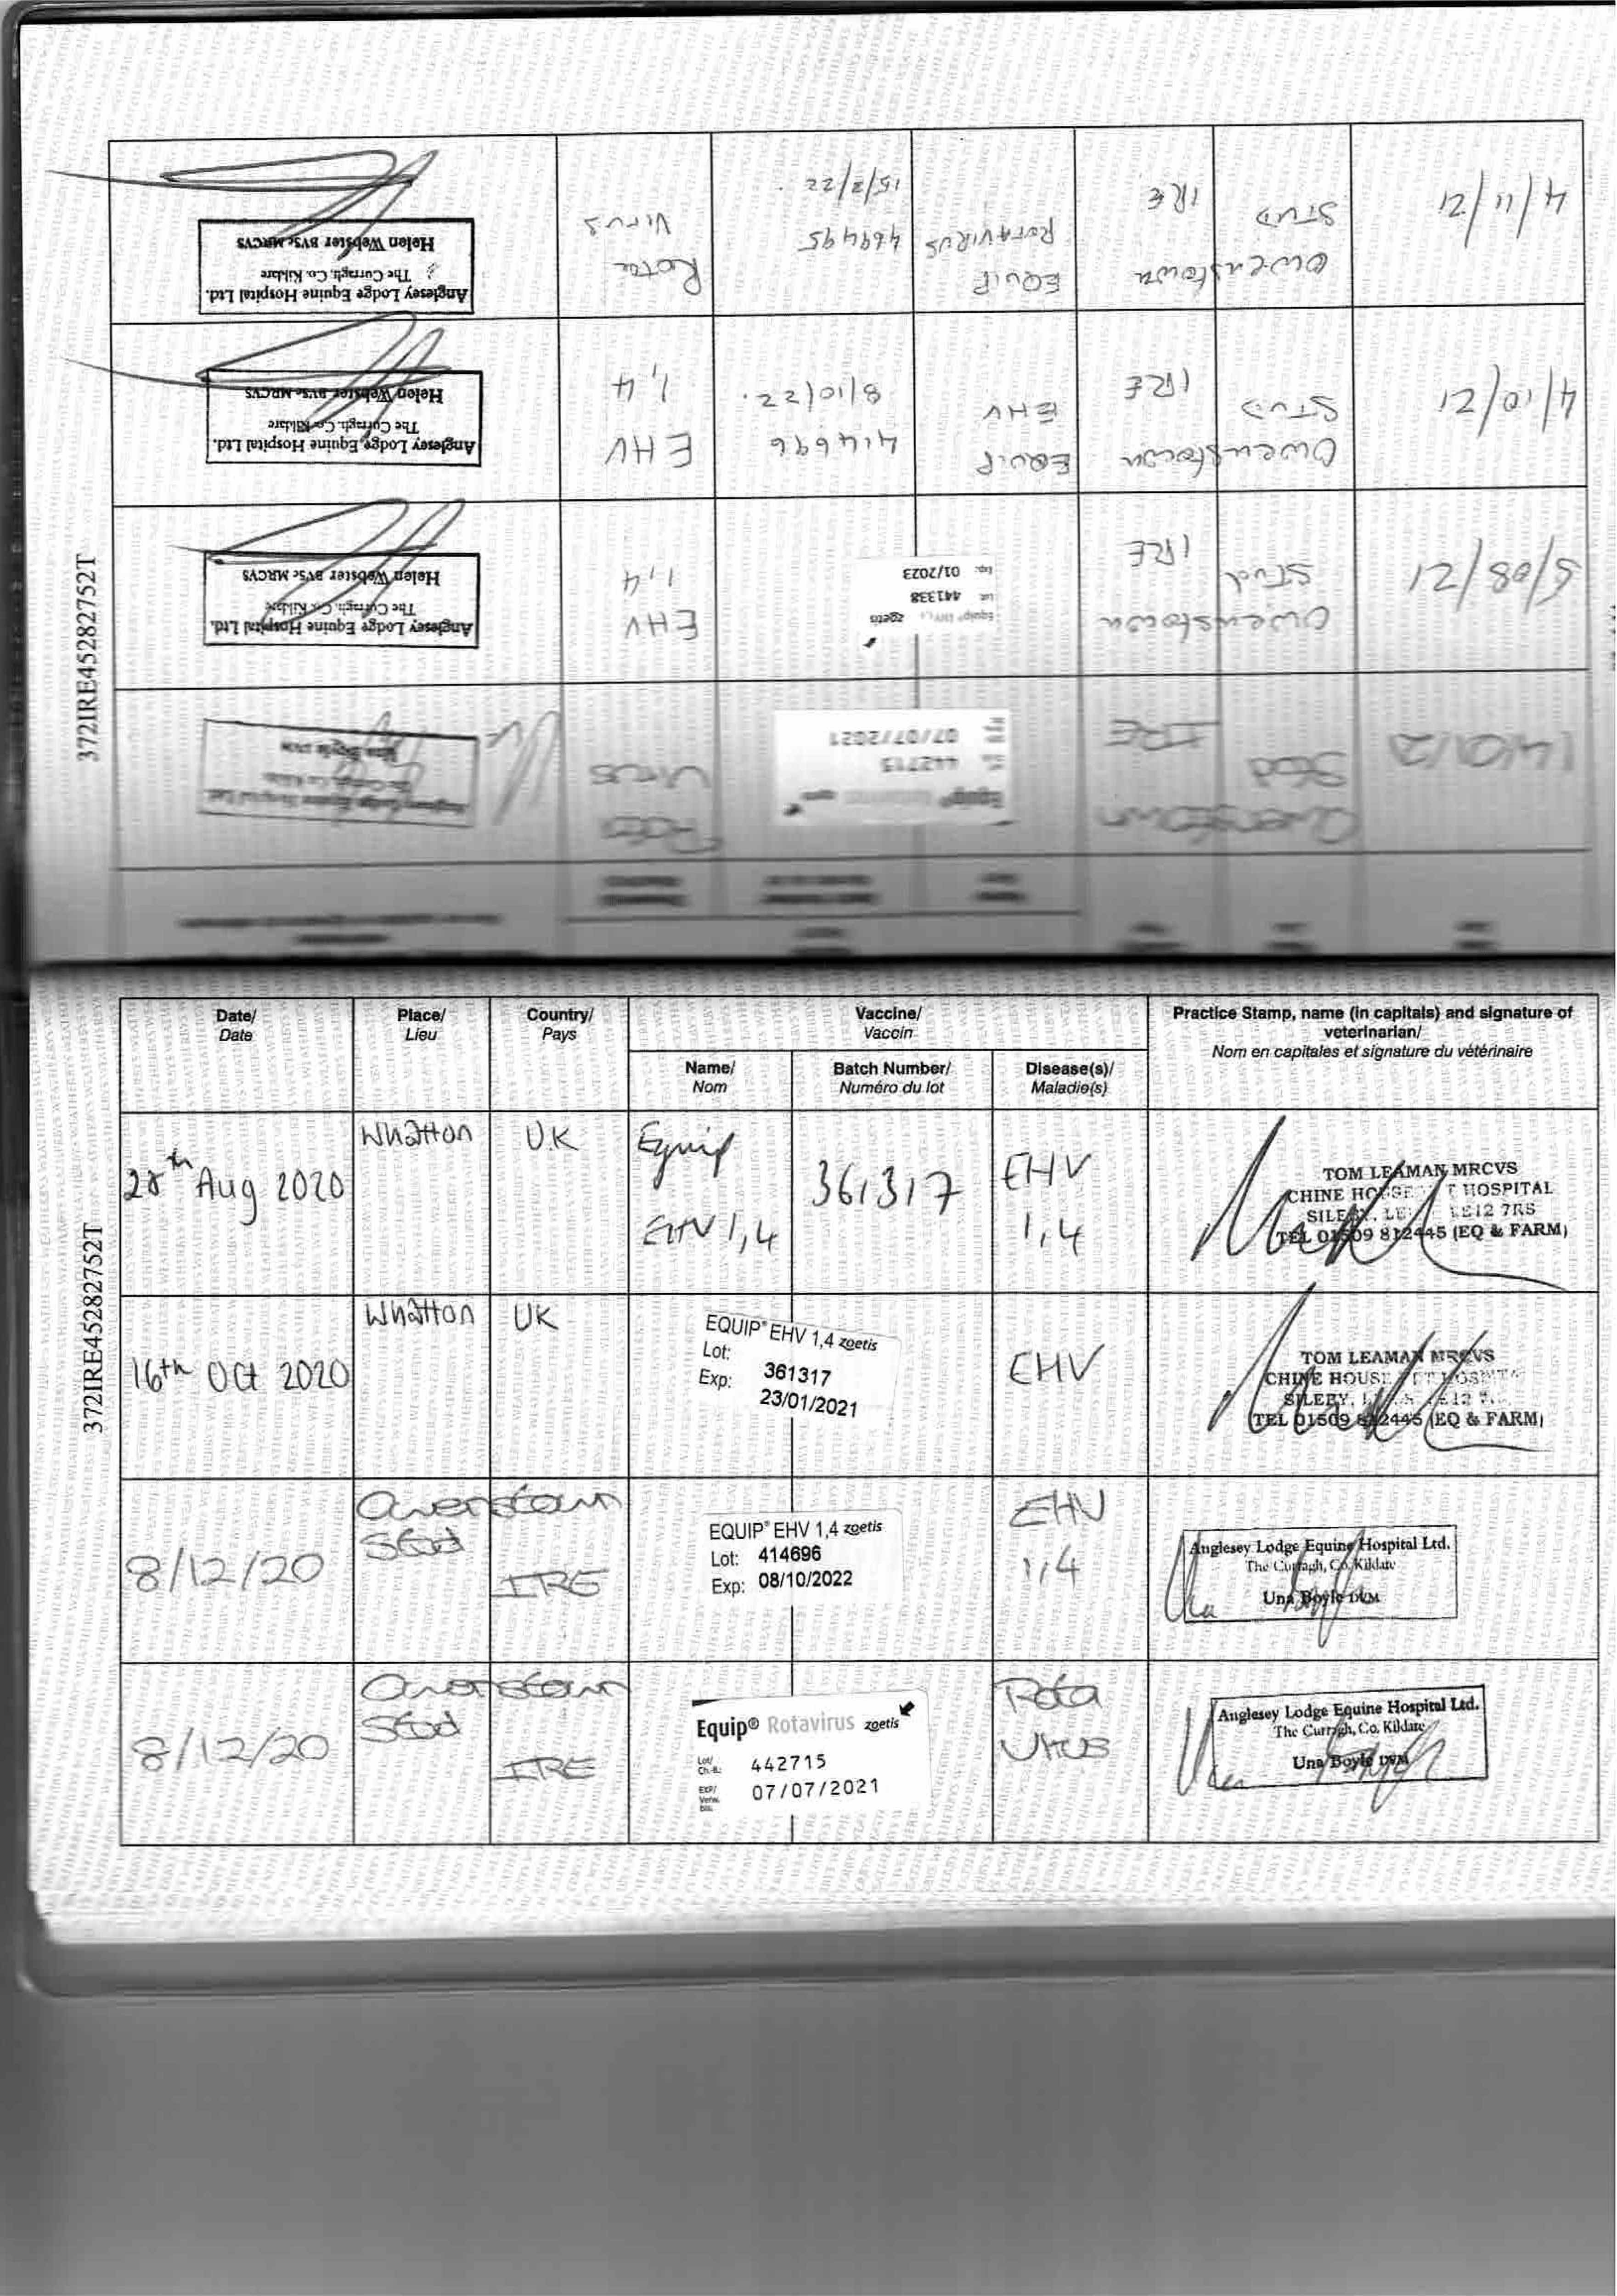 372IRE45282752T
4/11/21
Owenstown
STUD
IRE
EQUIP
ROTAVIRUS
469495
15/2/22.
Rota
Virus
Anglesey Lodge Equine Hospital Ltd.
The Curragh, Co. Kildare
Helen Webster BVSc MRCVS
4/10/21
Owenstown
STUD
IRE
EQUIP
EHV
414696
8/10/22.
EHV
1,4
Anglesey Lodge Equine Hospital Ltd.
The Curragh, Co. Kildare
Helen Webster BVSc MRCVS
5/08/21
Owenstown
Stud
IRE
Equip® EHV 1,4 zoetis
Lot 441338
Exp. 01/2023
EHV
1,4
Anglesey Lodge Equine Hospital Ltd.
The Curragh, Co. Kildare
Helen Webster BVSc MRCVS
Owenstown
Stud
IRE
Equip® Rotavirus
442715
07/07/2021
Rota
Virus
Anglesey Lodge Equine Hospital Ltd.
The Curragh, Co. Kildare
Una Boyle DVM
372IRE45282752T
Date/
Date
Place/
Lieu
Country/
Pays
Vaccine/
Vaccin
Name/
Nom
Batch Number/
Numéro du lot
Disease(s)/
Maladie(s)
Practice Stamp, name (in capitals) and signature of
veterinarian/
Nom en capitales et signature du vétérinaire
28th Aug 2020
Whatton
UK
Equip
EHV 1,4
361317
EHV
1,4
TOM LEAMAN MRCVS
CHINE HOUSE VET HOSPITAL
SILEBY, LE12 7RS
TEL 01509 812445 (EQ & FARM)
16th Oct 2020
Whatton
UK
EQUIP® EHV 1,4 zoetis
Lot: 361317
Exp: 23/01/2021
EHV
TOM LEAMAN MRCVS
CHINE HOUSE VET HOSPITAL
SILEBY,
TEL 01509 812445 (EQ & FARM)
8/12/20
Owenstown
Stud
IRE
EQUIP® EHV 1,4 zoetis
Lot: 414696
Exp: 08/10/2022
EHV
1,4
Anglesey Lodge Equine Hospital Ltd.
The Curragh, Co. Kildare
Una Boyle DVM
8/12/20
Owenstown
Stud
IRE
Equip® Rotavirus zoetis
Lot/
Ch.-B.: 442715
EXP/
Verw.
bis: 07/07/2021
Rota
Virus
Anglesey Lodge Equine Hospital Ltd.
The Curragh, Co. Kildare
Una Boyle DVM